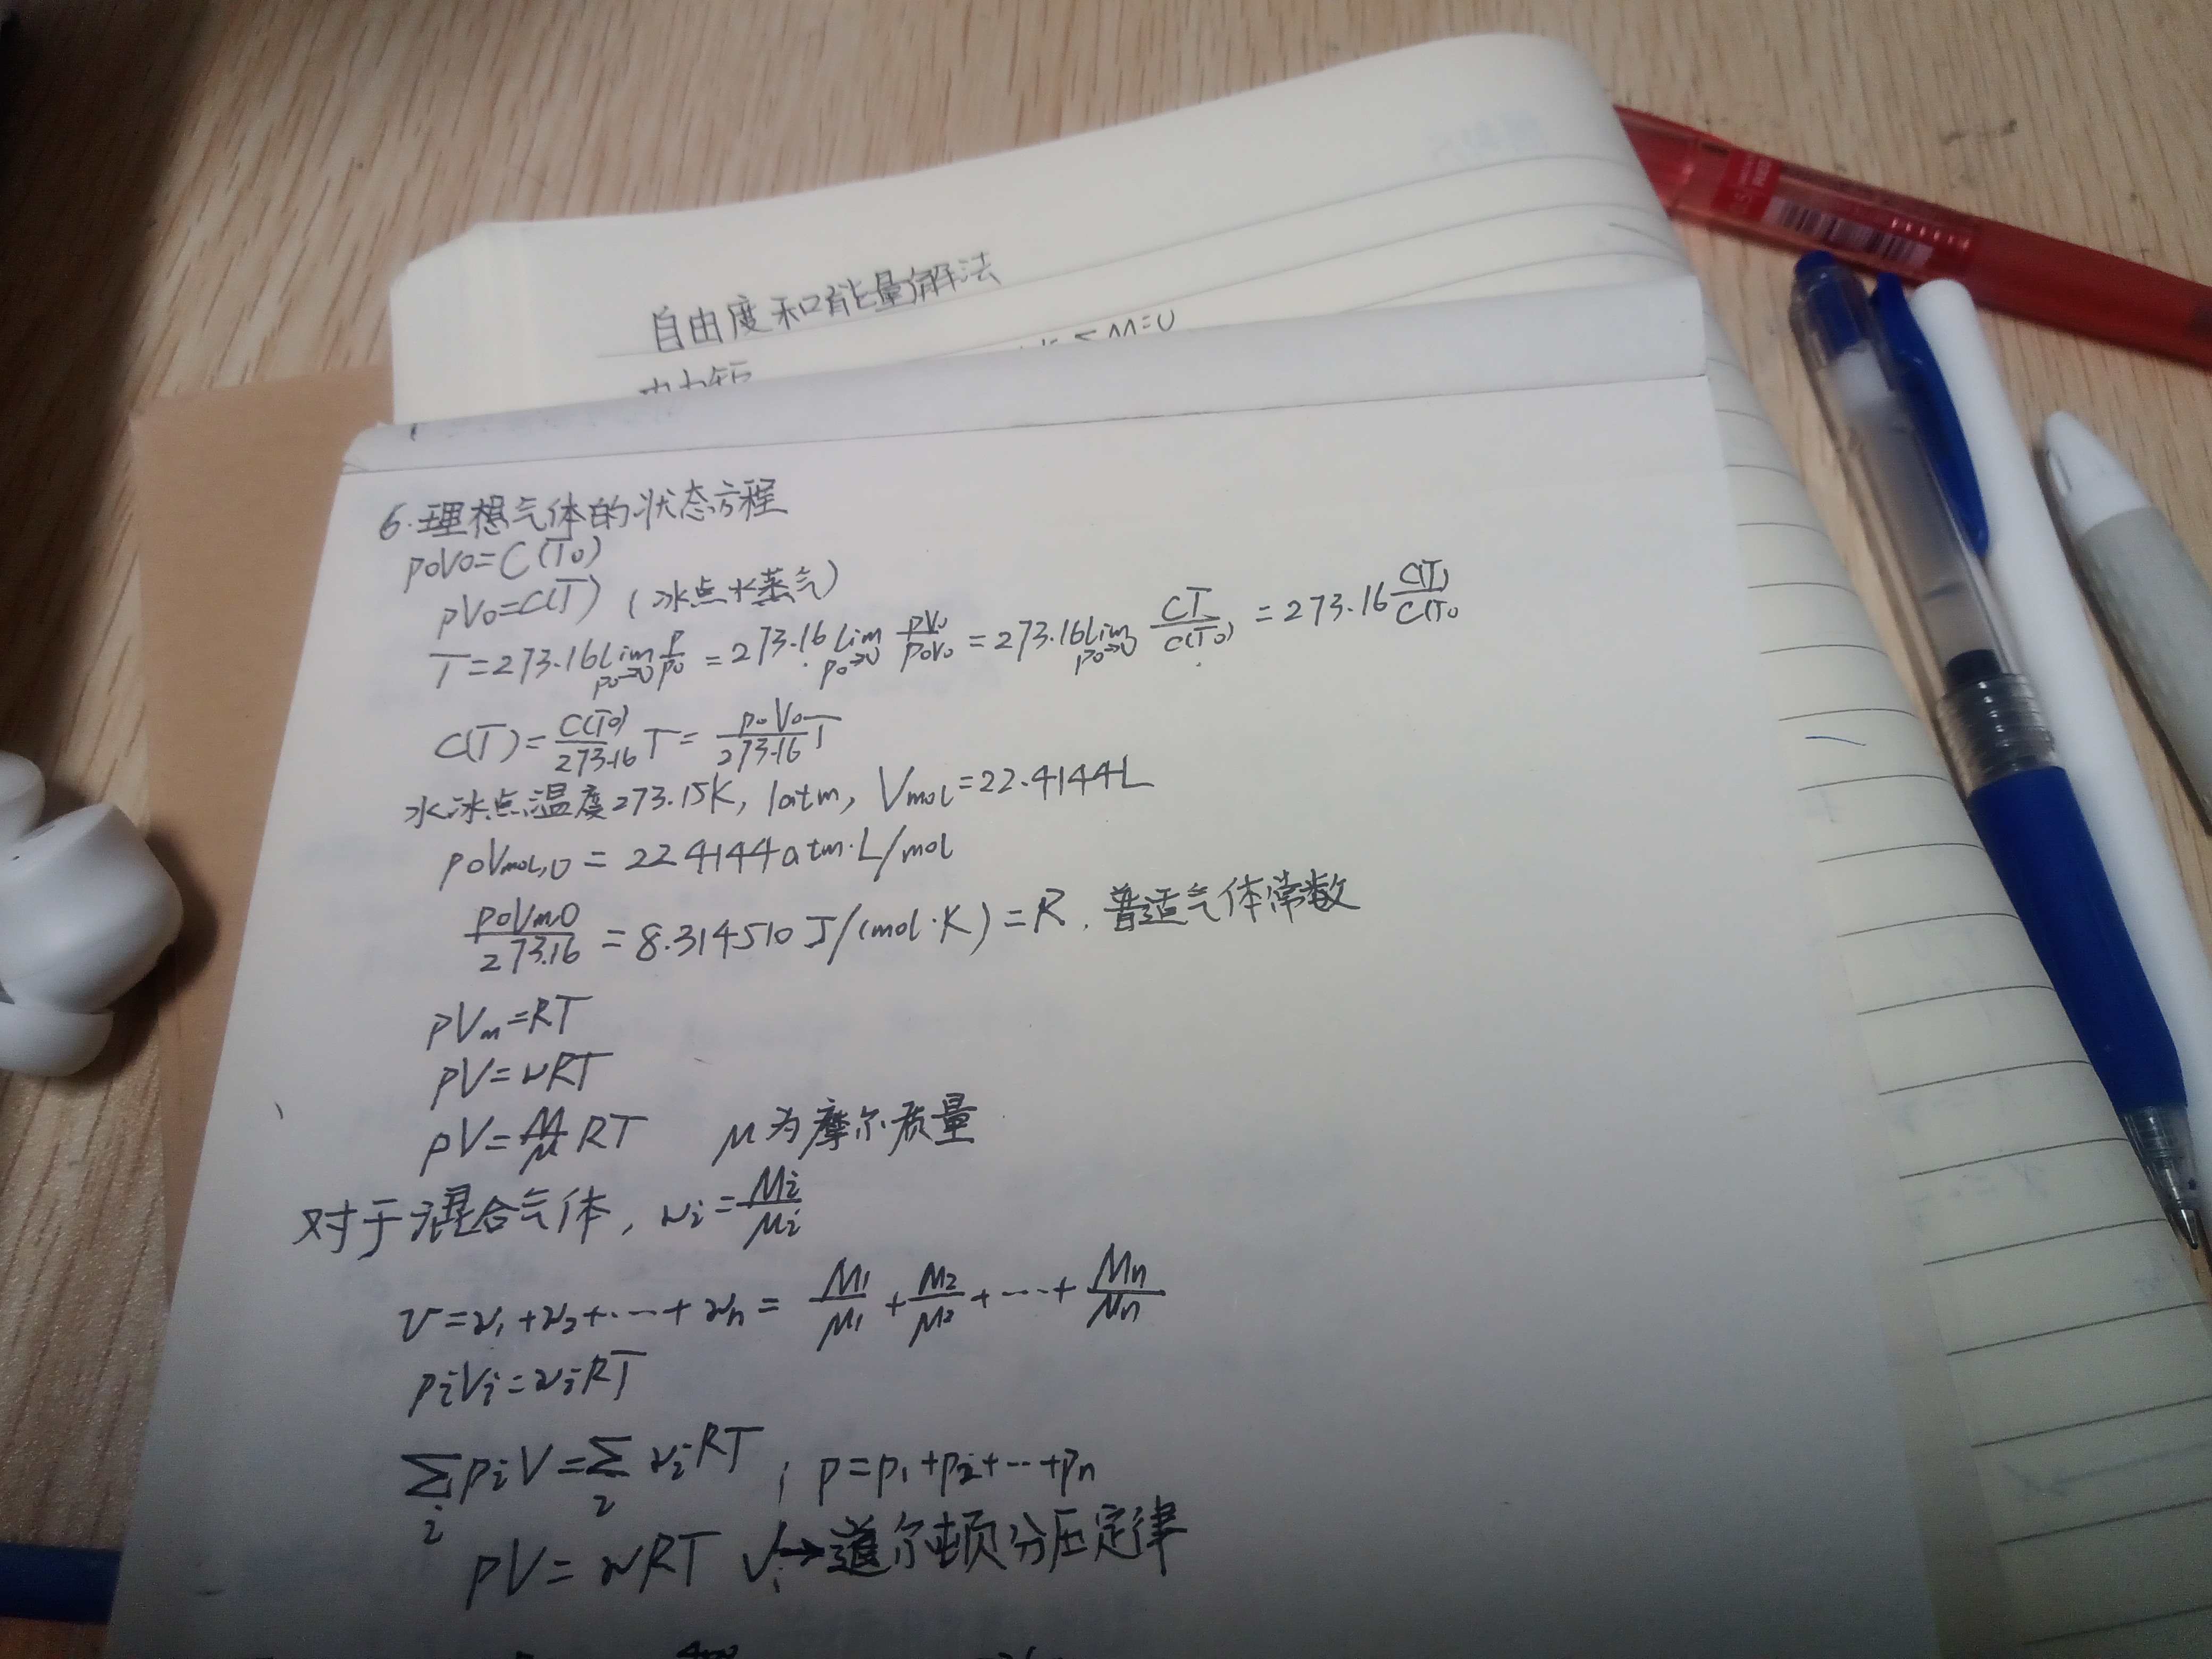 自由度和能量解法
ΣM=0
6.理想气体的状态方程
p₀V₀=C(T₀)
pV₀=C(T) (冰点水蒸气)
T=273.16 lim_{p₀→0} p/p₀ = 273.16 lim_{p₀→0} pV₀/p₀V₀ = 273.16 lim_{p₀→0} CT/C(T₀) = 273.16 C(T)/C(T₀
C(T)= C(T₀)/273.16 T = p₀V₀/273.16 T
水冰点温度273.15K, 1atm, Vmol=22.4144L
p₀Vmol,0 = 22.4144atm·L/mol
p₀Vm0/273.16 = 8.314510 J/(mol·K) = R. 普适气体常数
pVm=RT
pV=νRT
pV=M/μ RT μ为摩尔质量
对于混合气体, νi=Mi/μi
ν=ν₁+ν₂+····+νn= M₁/μ₁ + M₂/μ₂ +····+ Mn/μn
piVi=νiRT
Σi piV=Σi νiRT ; p=p₁+p₂+···+pn
pV=νRT √→道尔顿分压定律